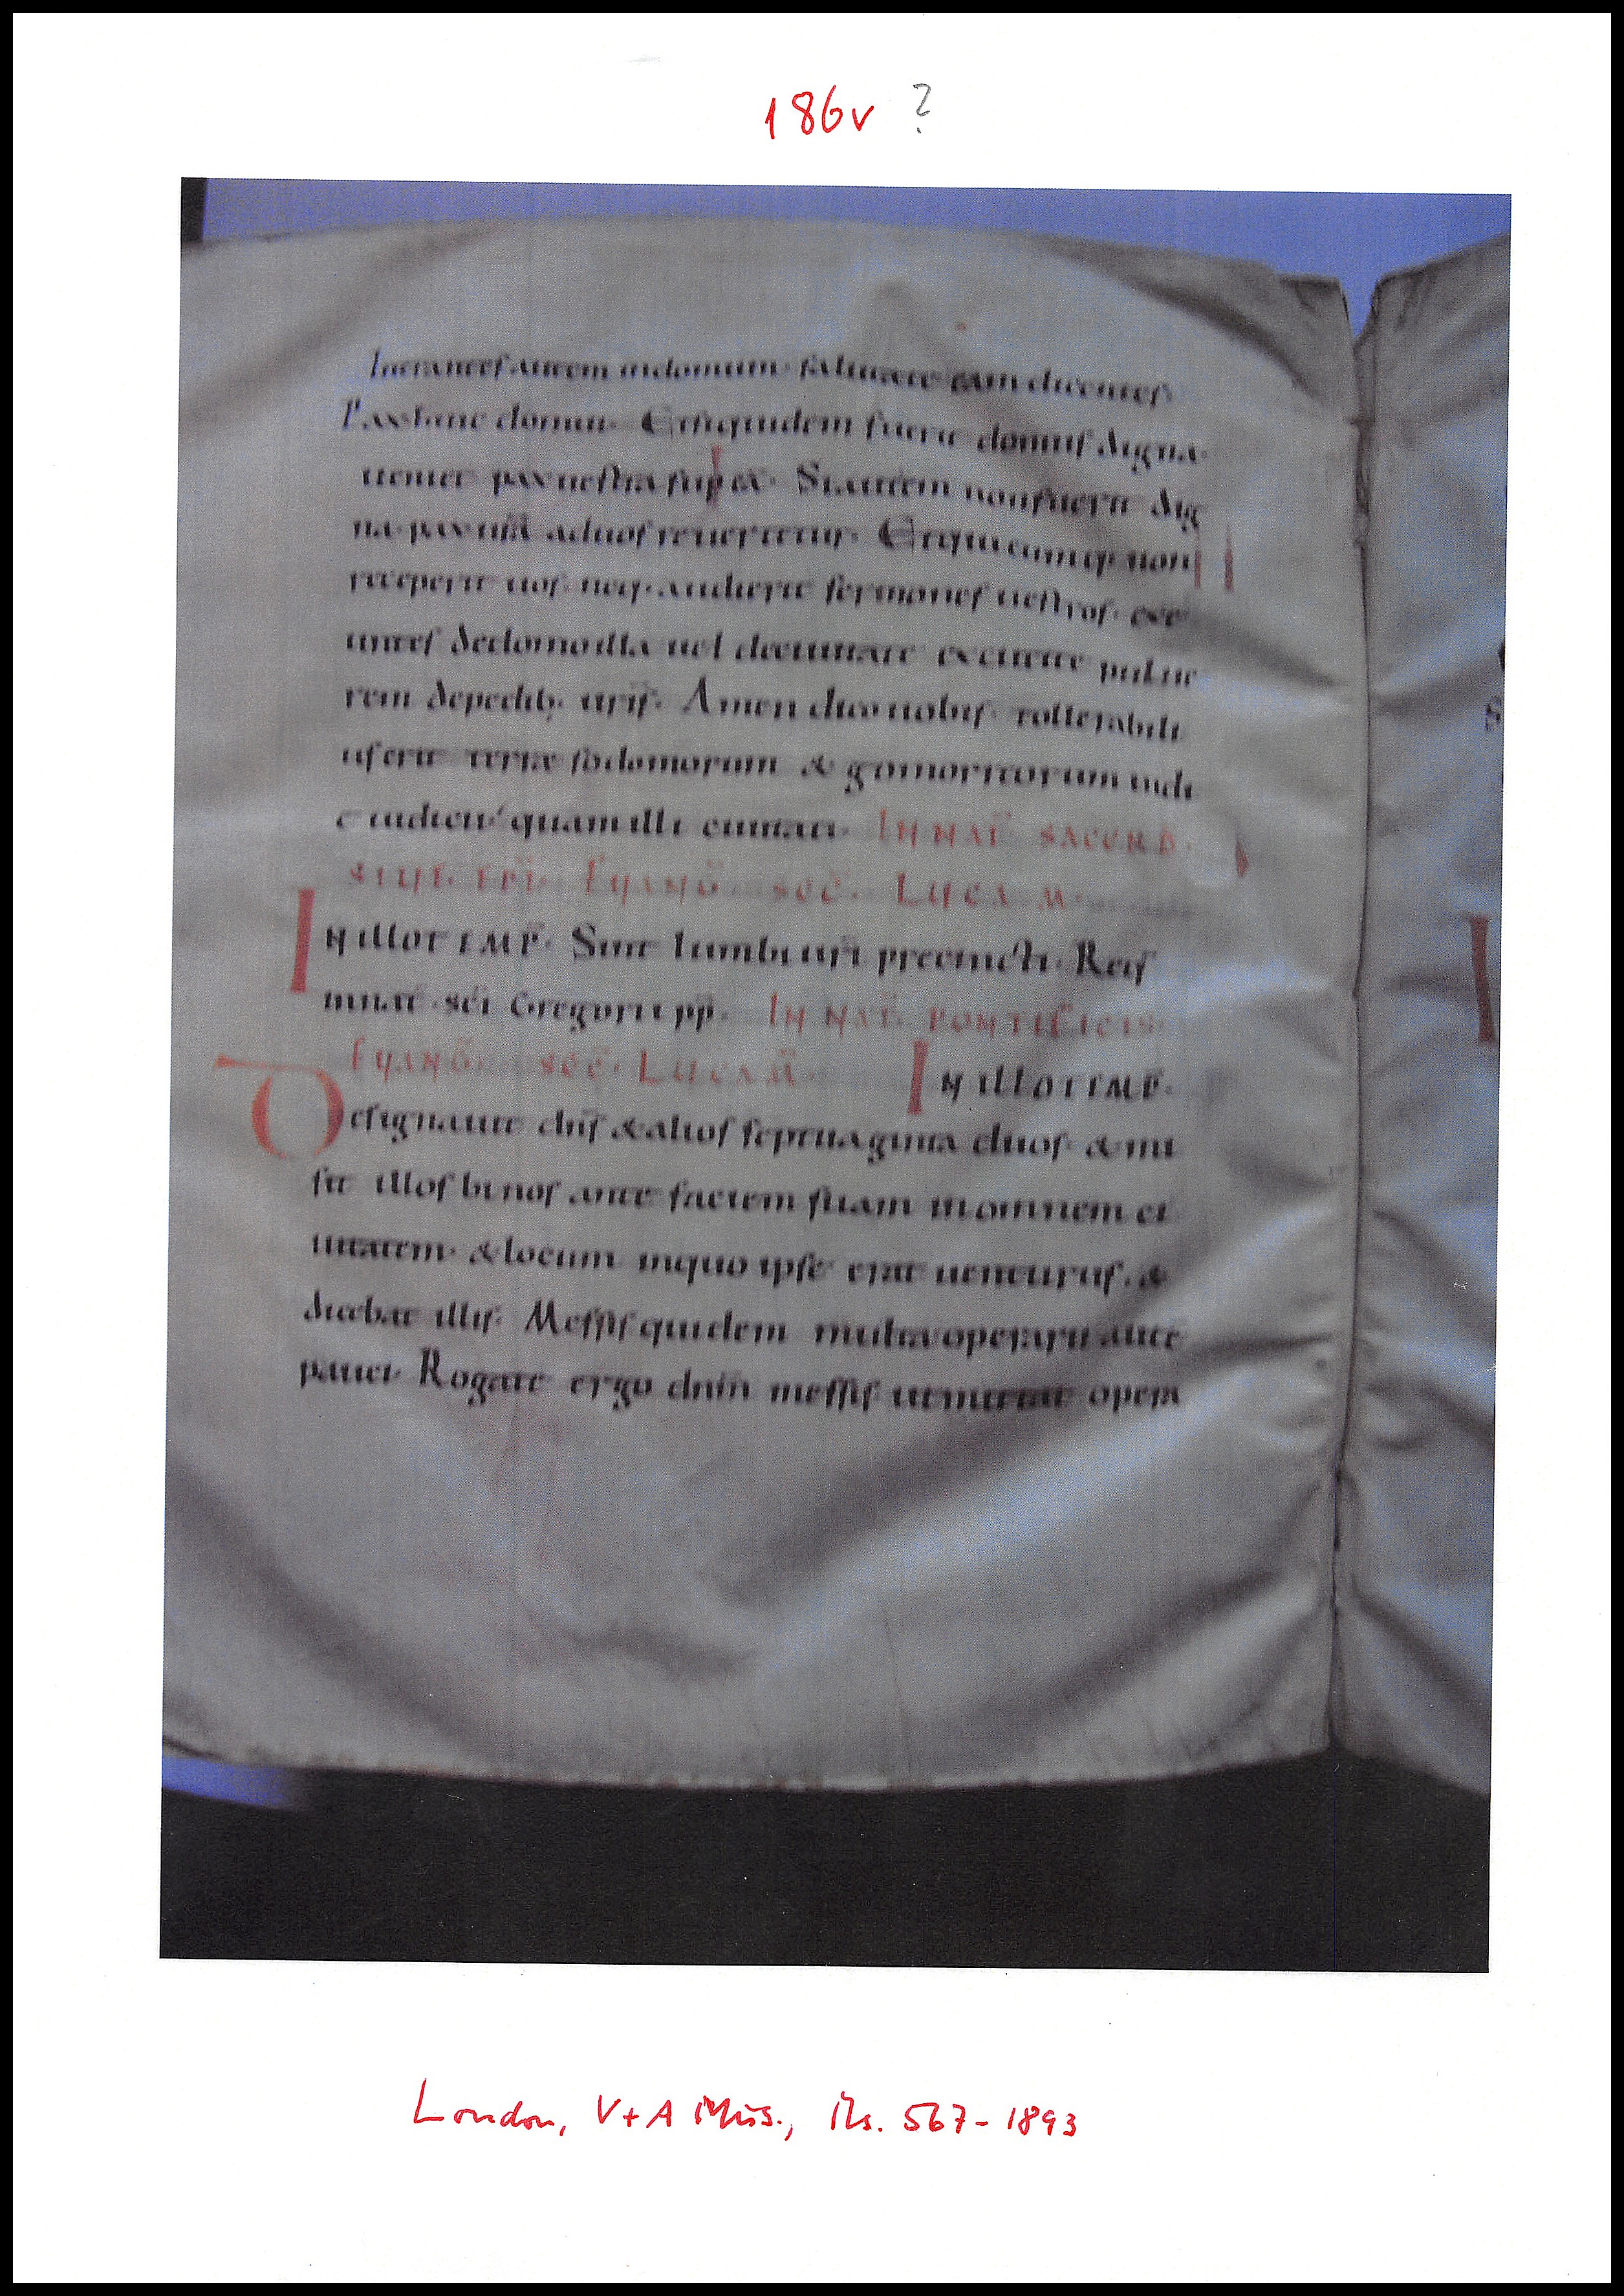 186v ?
Intrantes autem in domum · salutate eam dicentes ·
Pax huic domui · Et siquidem fuerit domus digna ·
ueniet pax uestra sup ea · Si autem non fuerit dig
na · pax urã aduos reuertetur · Et quicumq; non
receperit uos · neq; audierit sermones uestros · exe
untes de domo illa uel de ciuitate excutite pulue
rem de pedib; uris · Amen dico uobis · tollerabili
us erit terræ sodomorum & gomorreorum indi
e iudicii quam illi ciuitati · IN NAT SACERD ·
EUANG̃ · SEC̃ · LUCAM
IN ILLO TEMP̃ · Sint lumbi uri precincti · Req̃
in nat · sc̃i Gregorii pp̃ · IN NAT̃ · PONTIFICIS
EUANG̃ · SEC̃ · LUCAM̃ · IN ILLO TEMP̃ ·
Designauit dñs & alios septuaginta duos · & mi
sit illos binos ante faciem suam in omnem ci
uitatem · & locum in quo ipse erat uenturus · &
dicebat illis · Messis quidem multa operarii aute
pauci · Rogate ergo dnm̃ messis ut mittat opera
London, V+A Mus., Ms. 567-1893